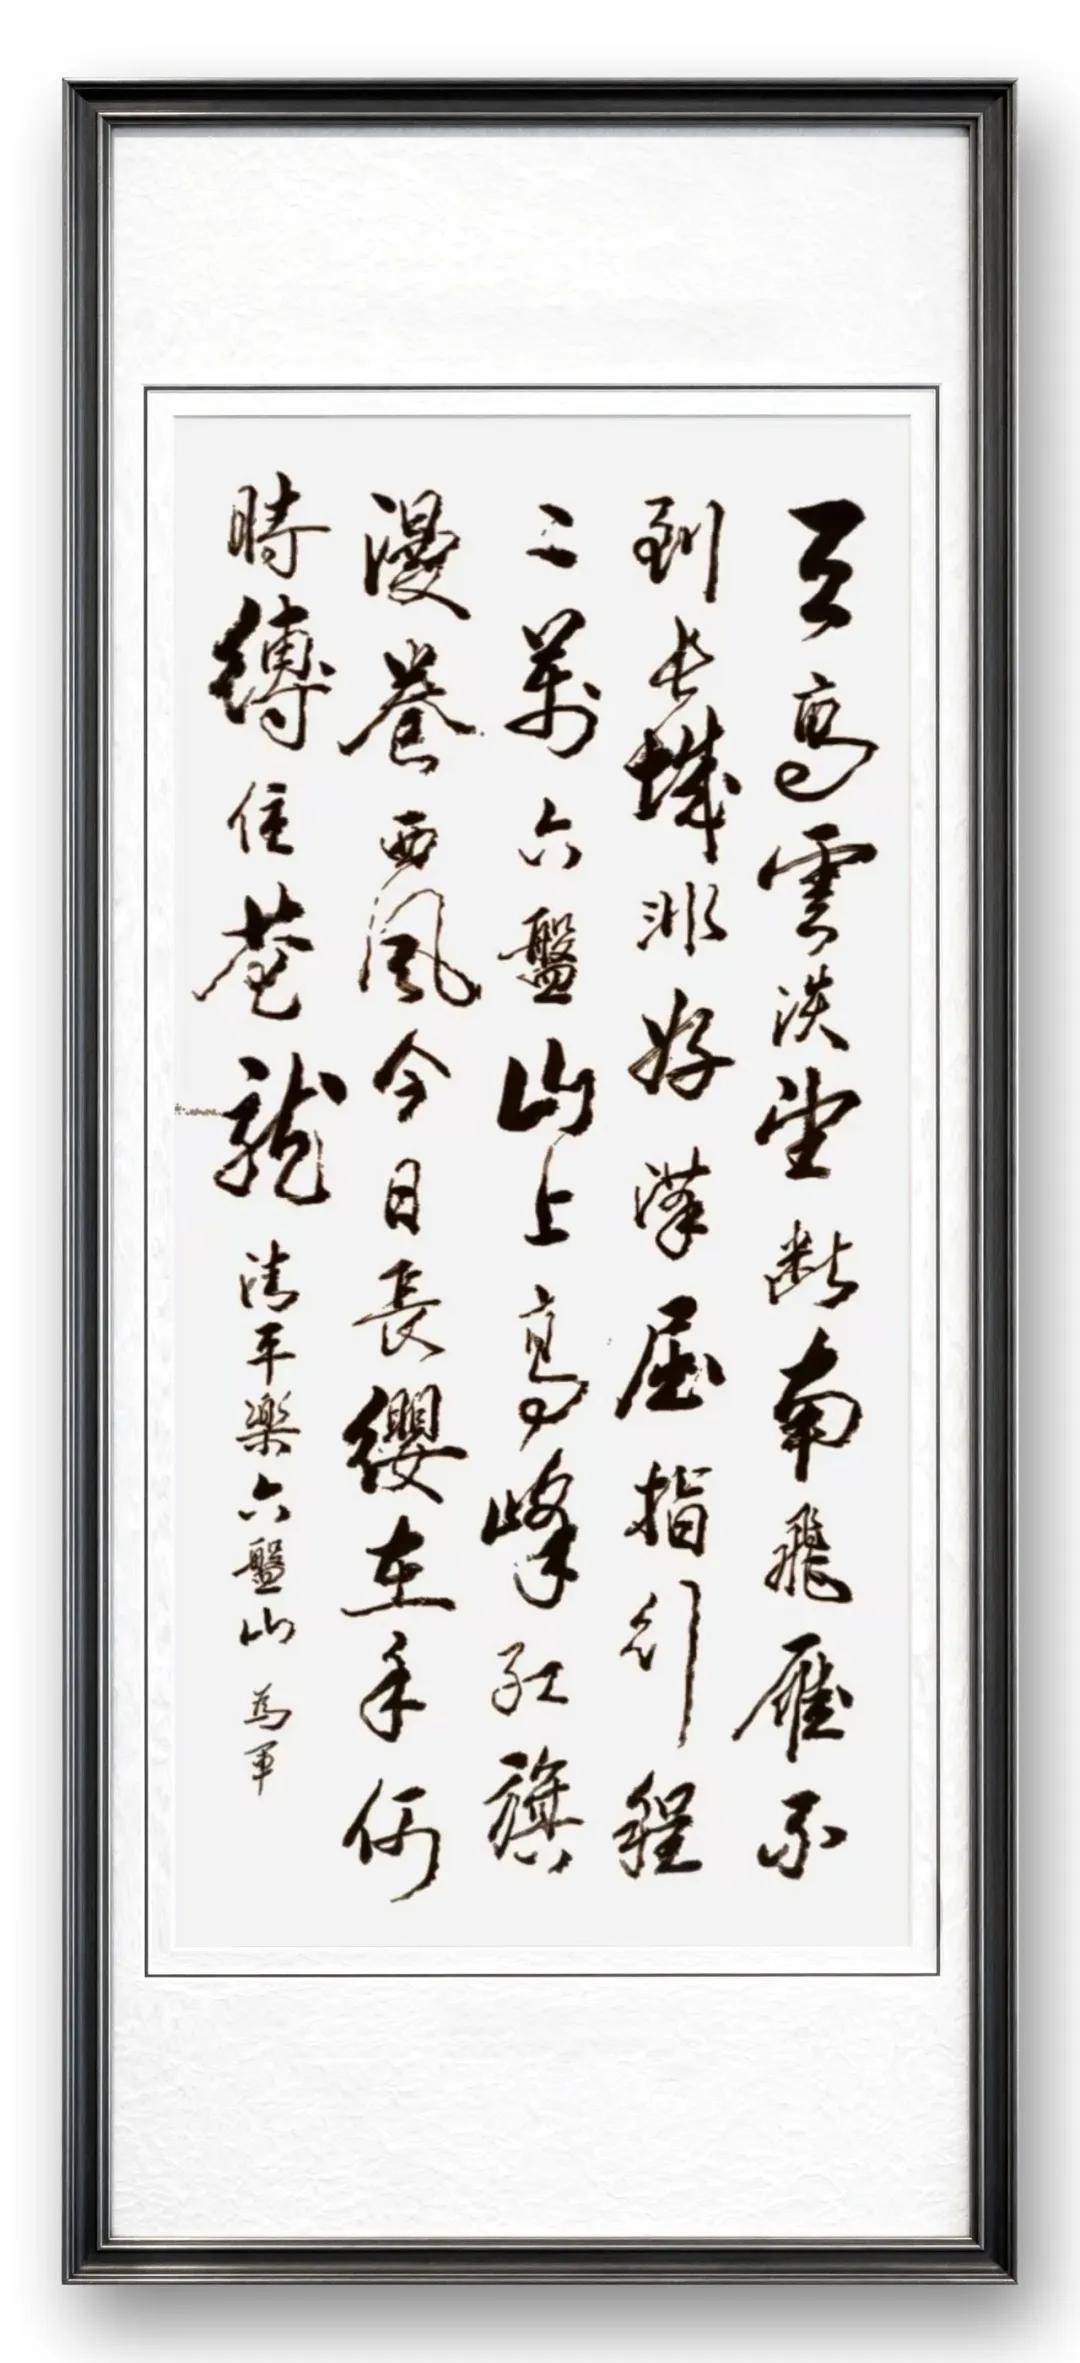 天高雲淡望断南飛雁不
到長城非好漢屈指行程
二萬六盤山上高峰紅旗
漫卷西風今日長纓在手何
時縛住蒼龍 清平樂六盤山 為軍